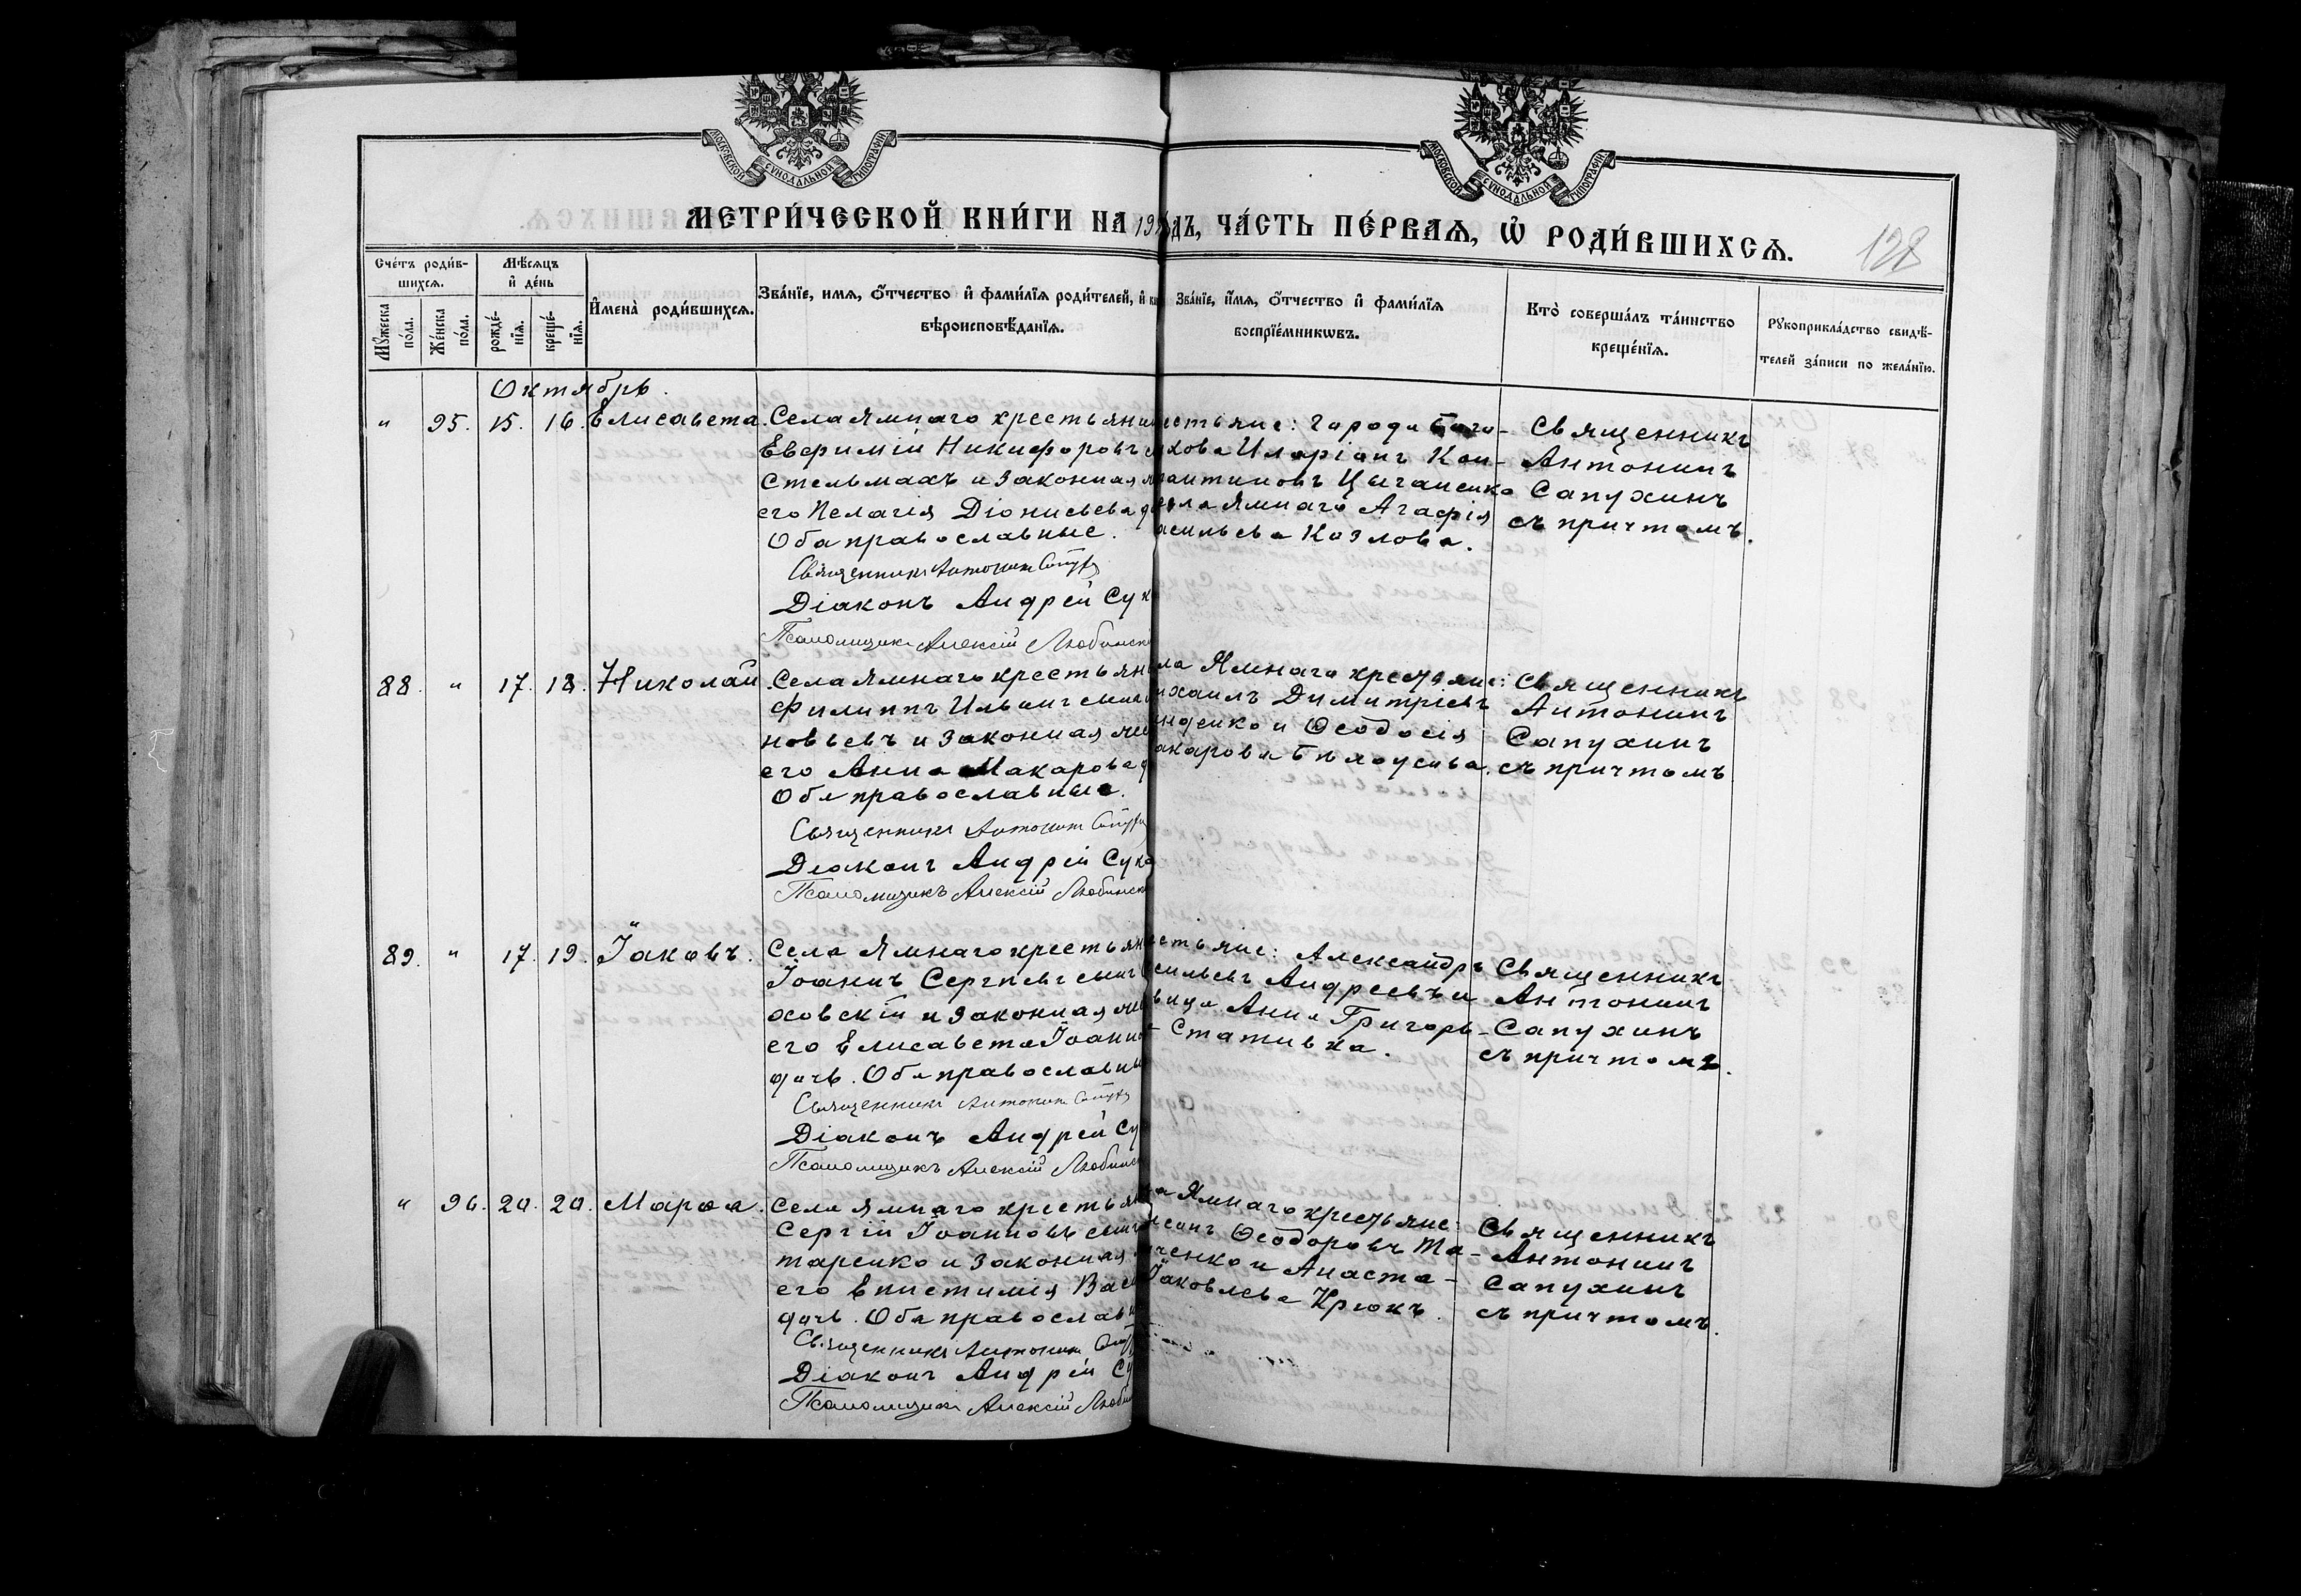 МОСКОВСКОЙ СѴНОДАЛЬНОЙ ТИПОГРАФІИ
МОСКОВСКОЙ СѴНОДАЛЬНОЙ ТИПОГРАФІИ
МЕТРИ́ЧЕСКОЙ КНИ́ГИ НА 19 ДЪ, ЧА́СТЬ ПЕ́РВАѦ, Ѡ҆ РОДИ́ВШИХСѦ.
128
Сче́тъ роди́в-
шихсѧ.
Мꙋ́жеска
по́ла.
Же́нска
по́ла.
Мѣ́сѧцъ
и҆ де́нь
рожде́-
нїѧ.
креще́-
нїѧ.
И҆мена̀ роди́вшихсѧ.
Зва́нїе, имѧ, ѻ҆́тчество и҆ фами́лїѧ роди́телей, и҆
вѣроисповѣ́данїѧ.
Зва́нїе, и҆́мѧ, ѻ҆́тчество и҆ фами́лїѧ
воспрїе́мникѡвъ.
Кто̀ соверша́лъ та́инство
креще́нїѧ.
Рꙋкоприкла́дство свидѣ́-
телей за́писи по жела́нїю.
Октябрь.
" 95. 15. 16. Елисавета.
Села Ямнаго крестьяни
Евфимій Никифоровъ
Стельмахъ и законная
его Пелагія Діонисьева
Оба православные.
Священникъ Антонинъ
Діаконъ Андрей Сук
Псаломщикъ Алексій Любинскі
естьяне: города Бого-
хова Иларіонъ Кон-
антиновъ Цыганенко
ела Ямнаго Агафія
асильева Козлова.
Священникъ
Антонинъ
Сапухинъ
съ причтомъ.
88. " 17. 18. Николай.
Села Ямнаго крестьян
Филиппъ Ильинъ сынъ
новьевъ и законная же
его Анна Макарова
Оба православные.
Священникъ Антонинъ
Діаконъ Андрей Сук
Псаломщикъ Алексій Любинск
ла Ямнаго крестьяне:
ихаилъ Димитріевъ
нденко и Ѳеодосія
акарова Бѣлоусова.
Священникъ
Антонинъ
Сапухинъ
съ причтомъ
89. " 17. 19. Іаковъ.
Села Ямнаго крестьян
Іоаннъ Сергіевъ сынъ
ховскій и законная же
его Елисавета Іоанно
дочь. Оба православны
Священникъ Антонинъ
Діаконъ Андрей Су
Псаломщикъ Алексій Любинс
естьяне: Александръ
сильевъ Андреевъ и
вица Анна Григорь-
Стативка.
Священникъ
Антонинъ
Сапухинъ
съ причтомъ.
" 96. 20. 20. Марѳа.
Села Ямнаго крестьян
Сергій Іоанновъ сынъ
таренко и законная
его Епистимія Васи
дочь. Оба православн
Священникъ Антонинъ
Діаконъ Андрей Су
Псаломщикъ Алексій Люби
а Ямнаго крестьяне:
Ѳеодоровъ Та-
ченко и Анаста-
Іаковлева Крюкъ.
Священникъ
Антонинъ
Сапухинъ
съ причтомъ.